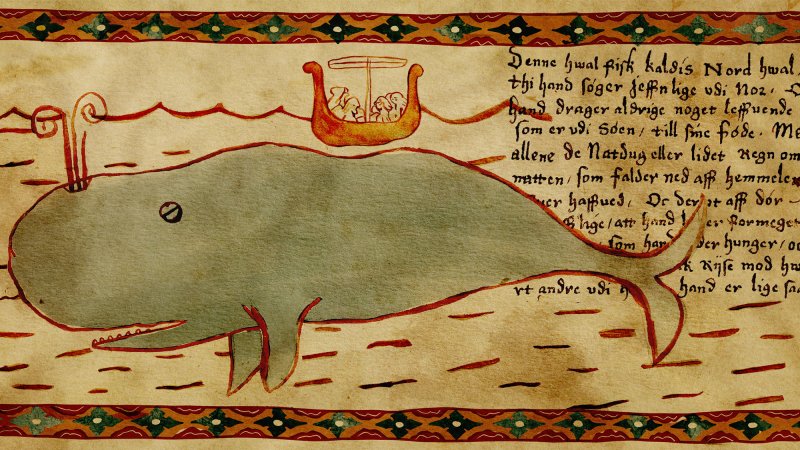 Denne hwal fisk kaldis Nord hwal
thi hand søger jeffnlige vdi Nor.
hand drager aldrige noget leffuende
som er vdi Søen, till sine føde. Me
allene de Natdug eller lidet Regn om
natten, som falder ned aff hemmele
offuer haffued, Oc der aff dør
lige, att hand er formeget
som hand der hunger, oc
Rijse mod hw
andre vdi hand er lige saa